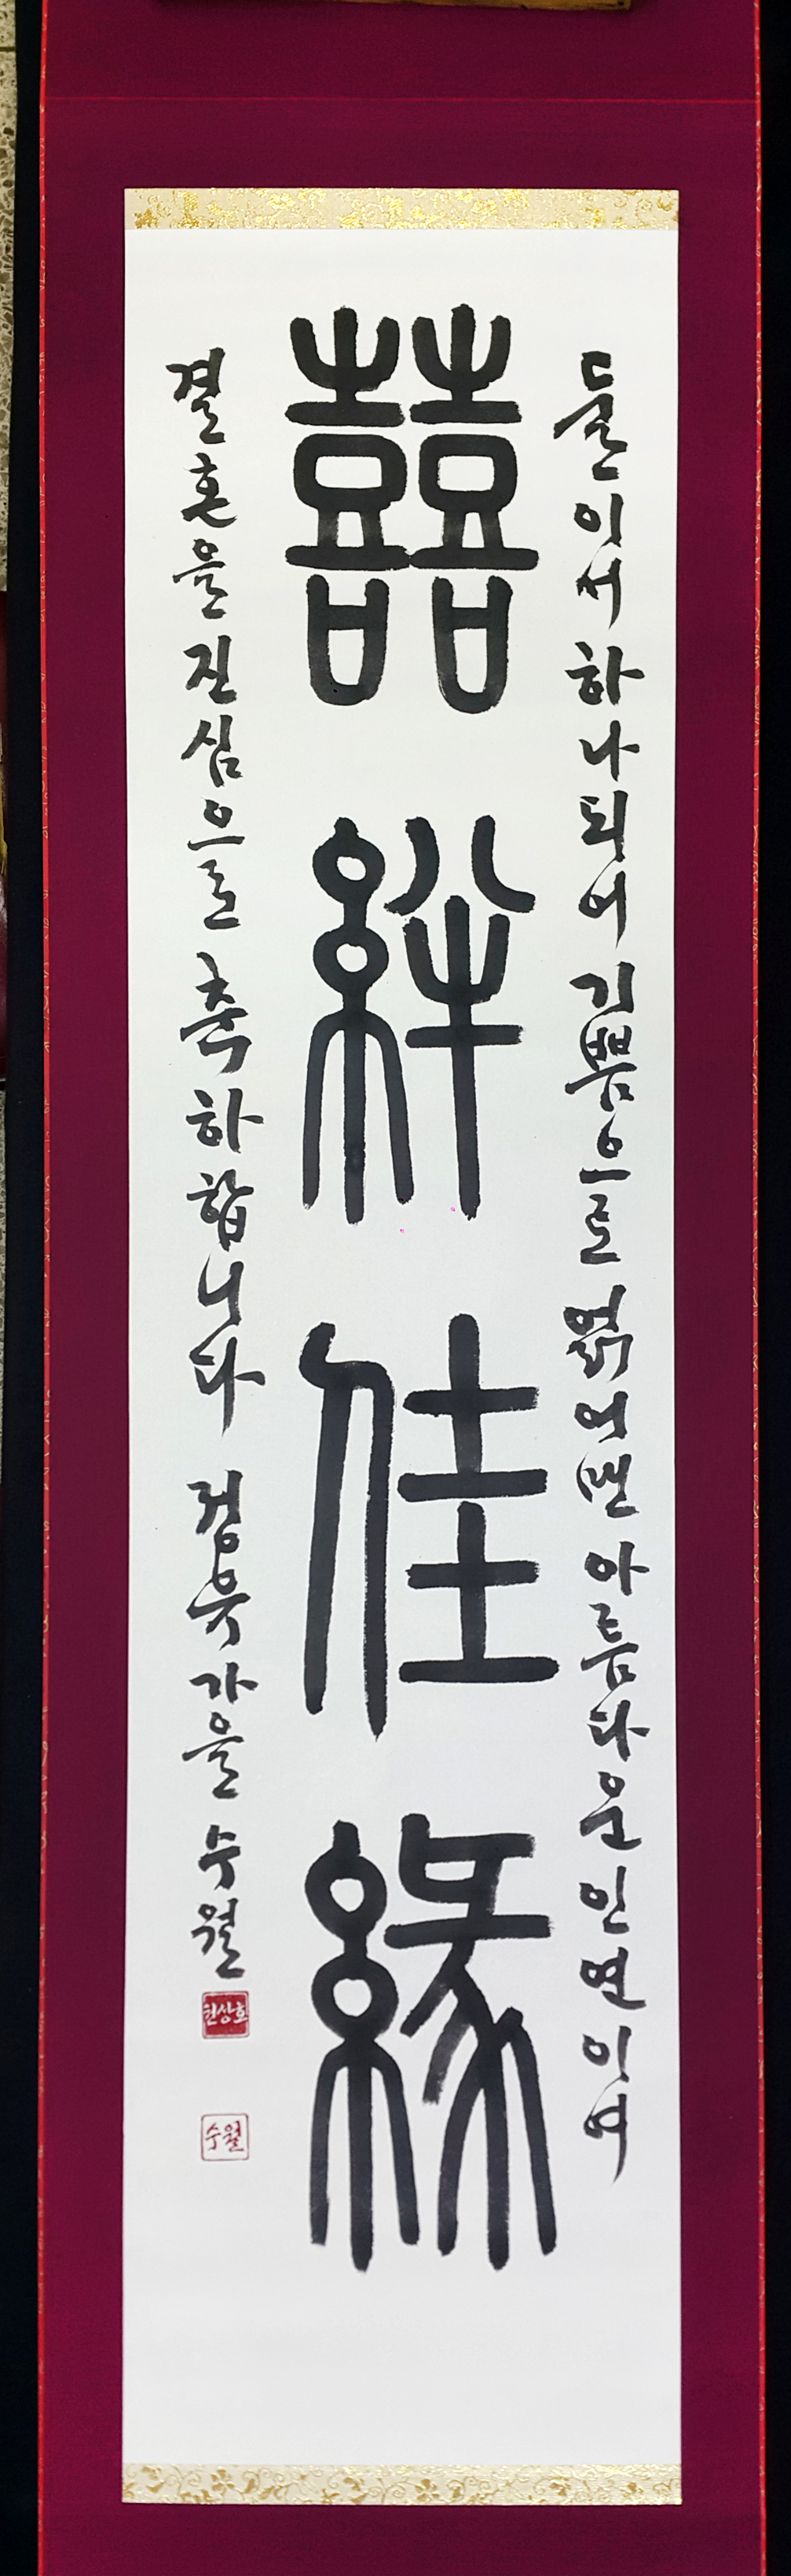 둘이서 하나되어 기쁨으로 얽어맨 아름다운 인연이여
囍絆佳緣
결혼을 진심으로 축하합니다 정유 가을 수월
수월